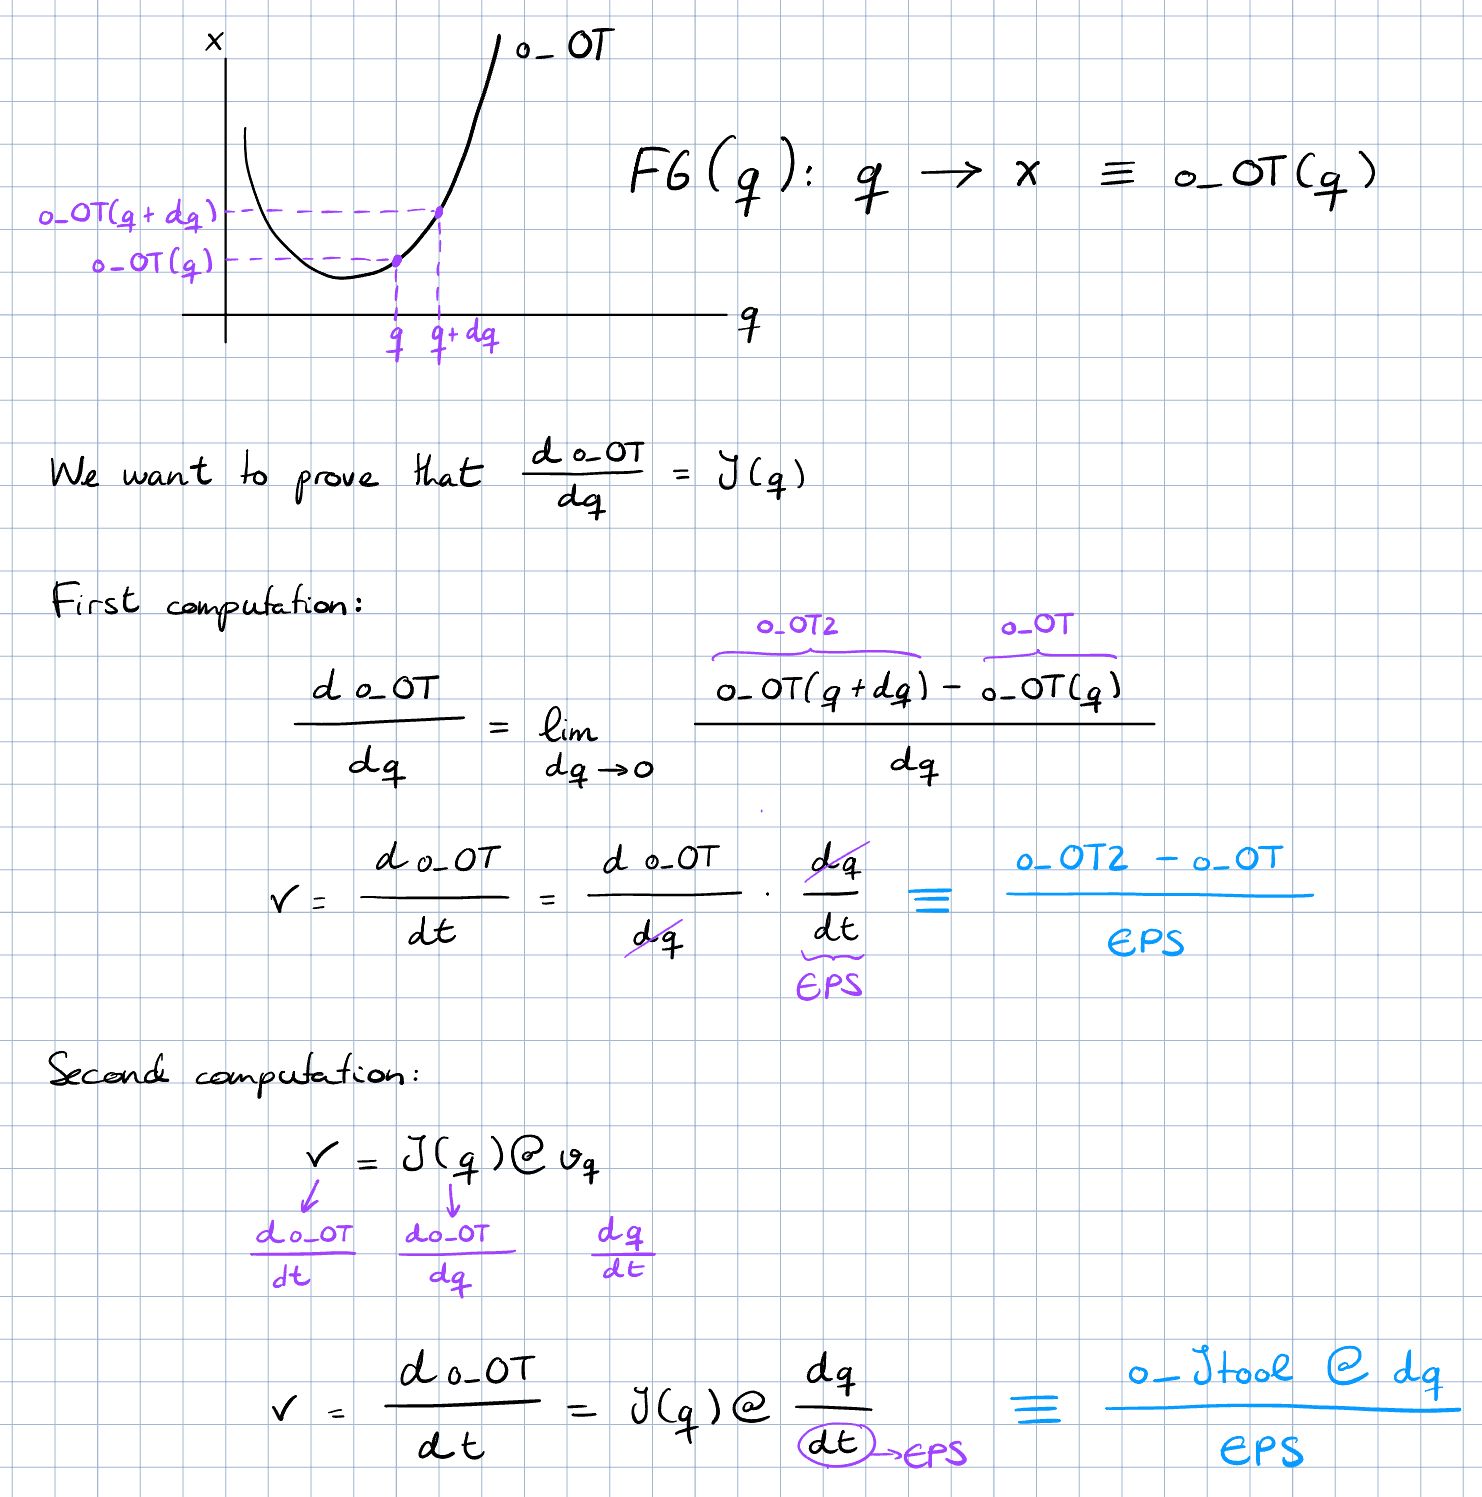 x
o_OT
FG(q): q → x ≡ o_OT(q)
o_OT(q+dq)
o_OT(q)
q
q q+dq
We want to prove that d o_OT / dq = J(q)
First computation:
o_OT2 o_OT
d o_OT / dq = lim dq→0 o_OT(q+dq) - o_OT(q) / dq
v = d o_OT / dt = d o_OT / dq · dq / dt ≡ o_OT2 - o_OT / EPS
EPS
Second computation:
v = J(q)@vq
d o_OT / dt d o_OT / dq dq / dt
v = d o_OT / dt = J(q)@ dq / dt → EPS ≡ o_Jtool @ dq / EPS